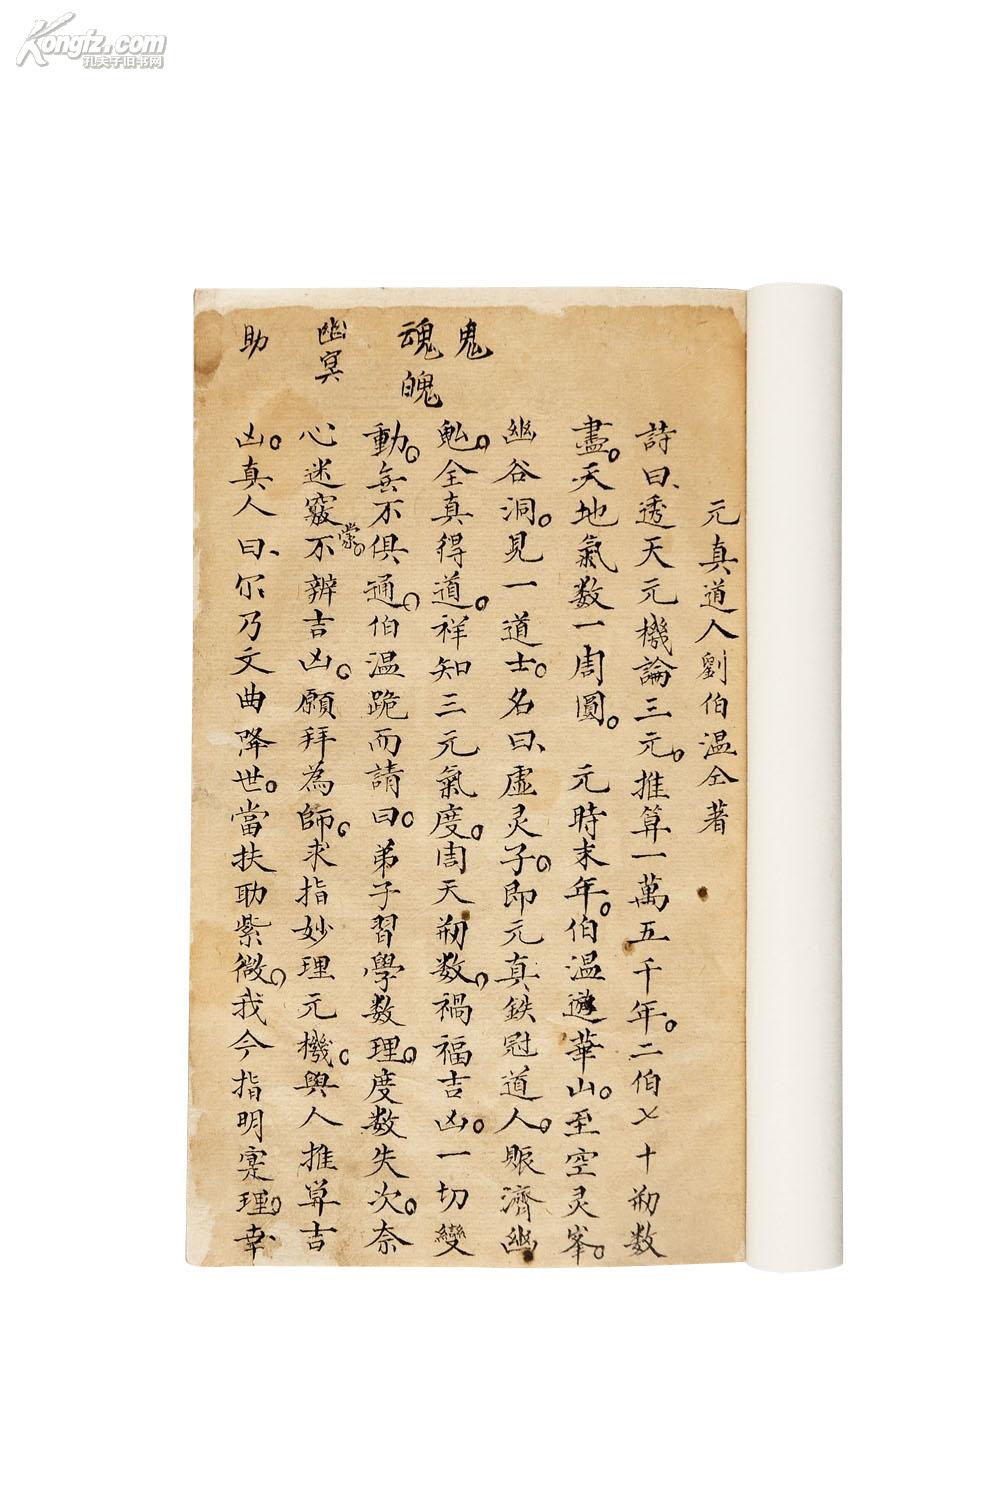 Kongfz.com
孔夫子旧书网
鬼
魂魄
幽冥
助
元真道人劉伯溫仝著
詩曰、透天元機論三元。推算一萬五千年。二伯七十刼数
盡。天地氣数一周圓。 元時末年。伯溫遊華山。至空灵峯。
幽谷洞。見一道士。名曰、虛灵子。即元真鉄冠道人。賑濟幽
鬽。全真得道。祥知三元氣度。周天刼数。禍福吉凶。一切變
動。無不俱通。伯溫跪而請曰。弟子習學数理。度数失次。奈
心迷竅棠。不辨吉凶。願拜為師。求指妙理元機。與人推算吉
凶。真人曰、尔乃文曲降世。當扶助紫微。我今指明寔理。幸